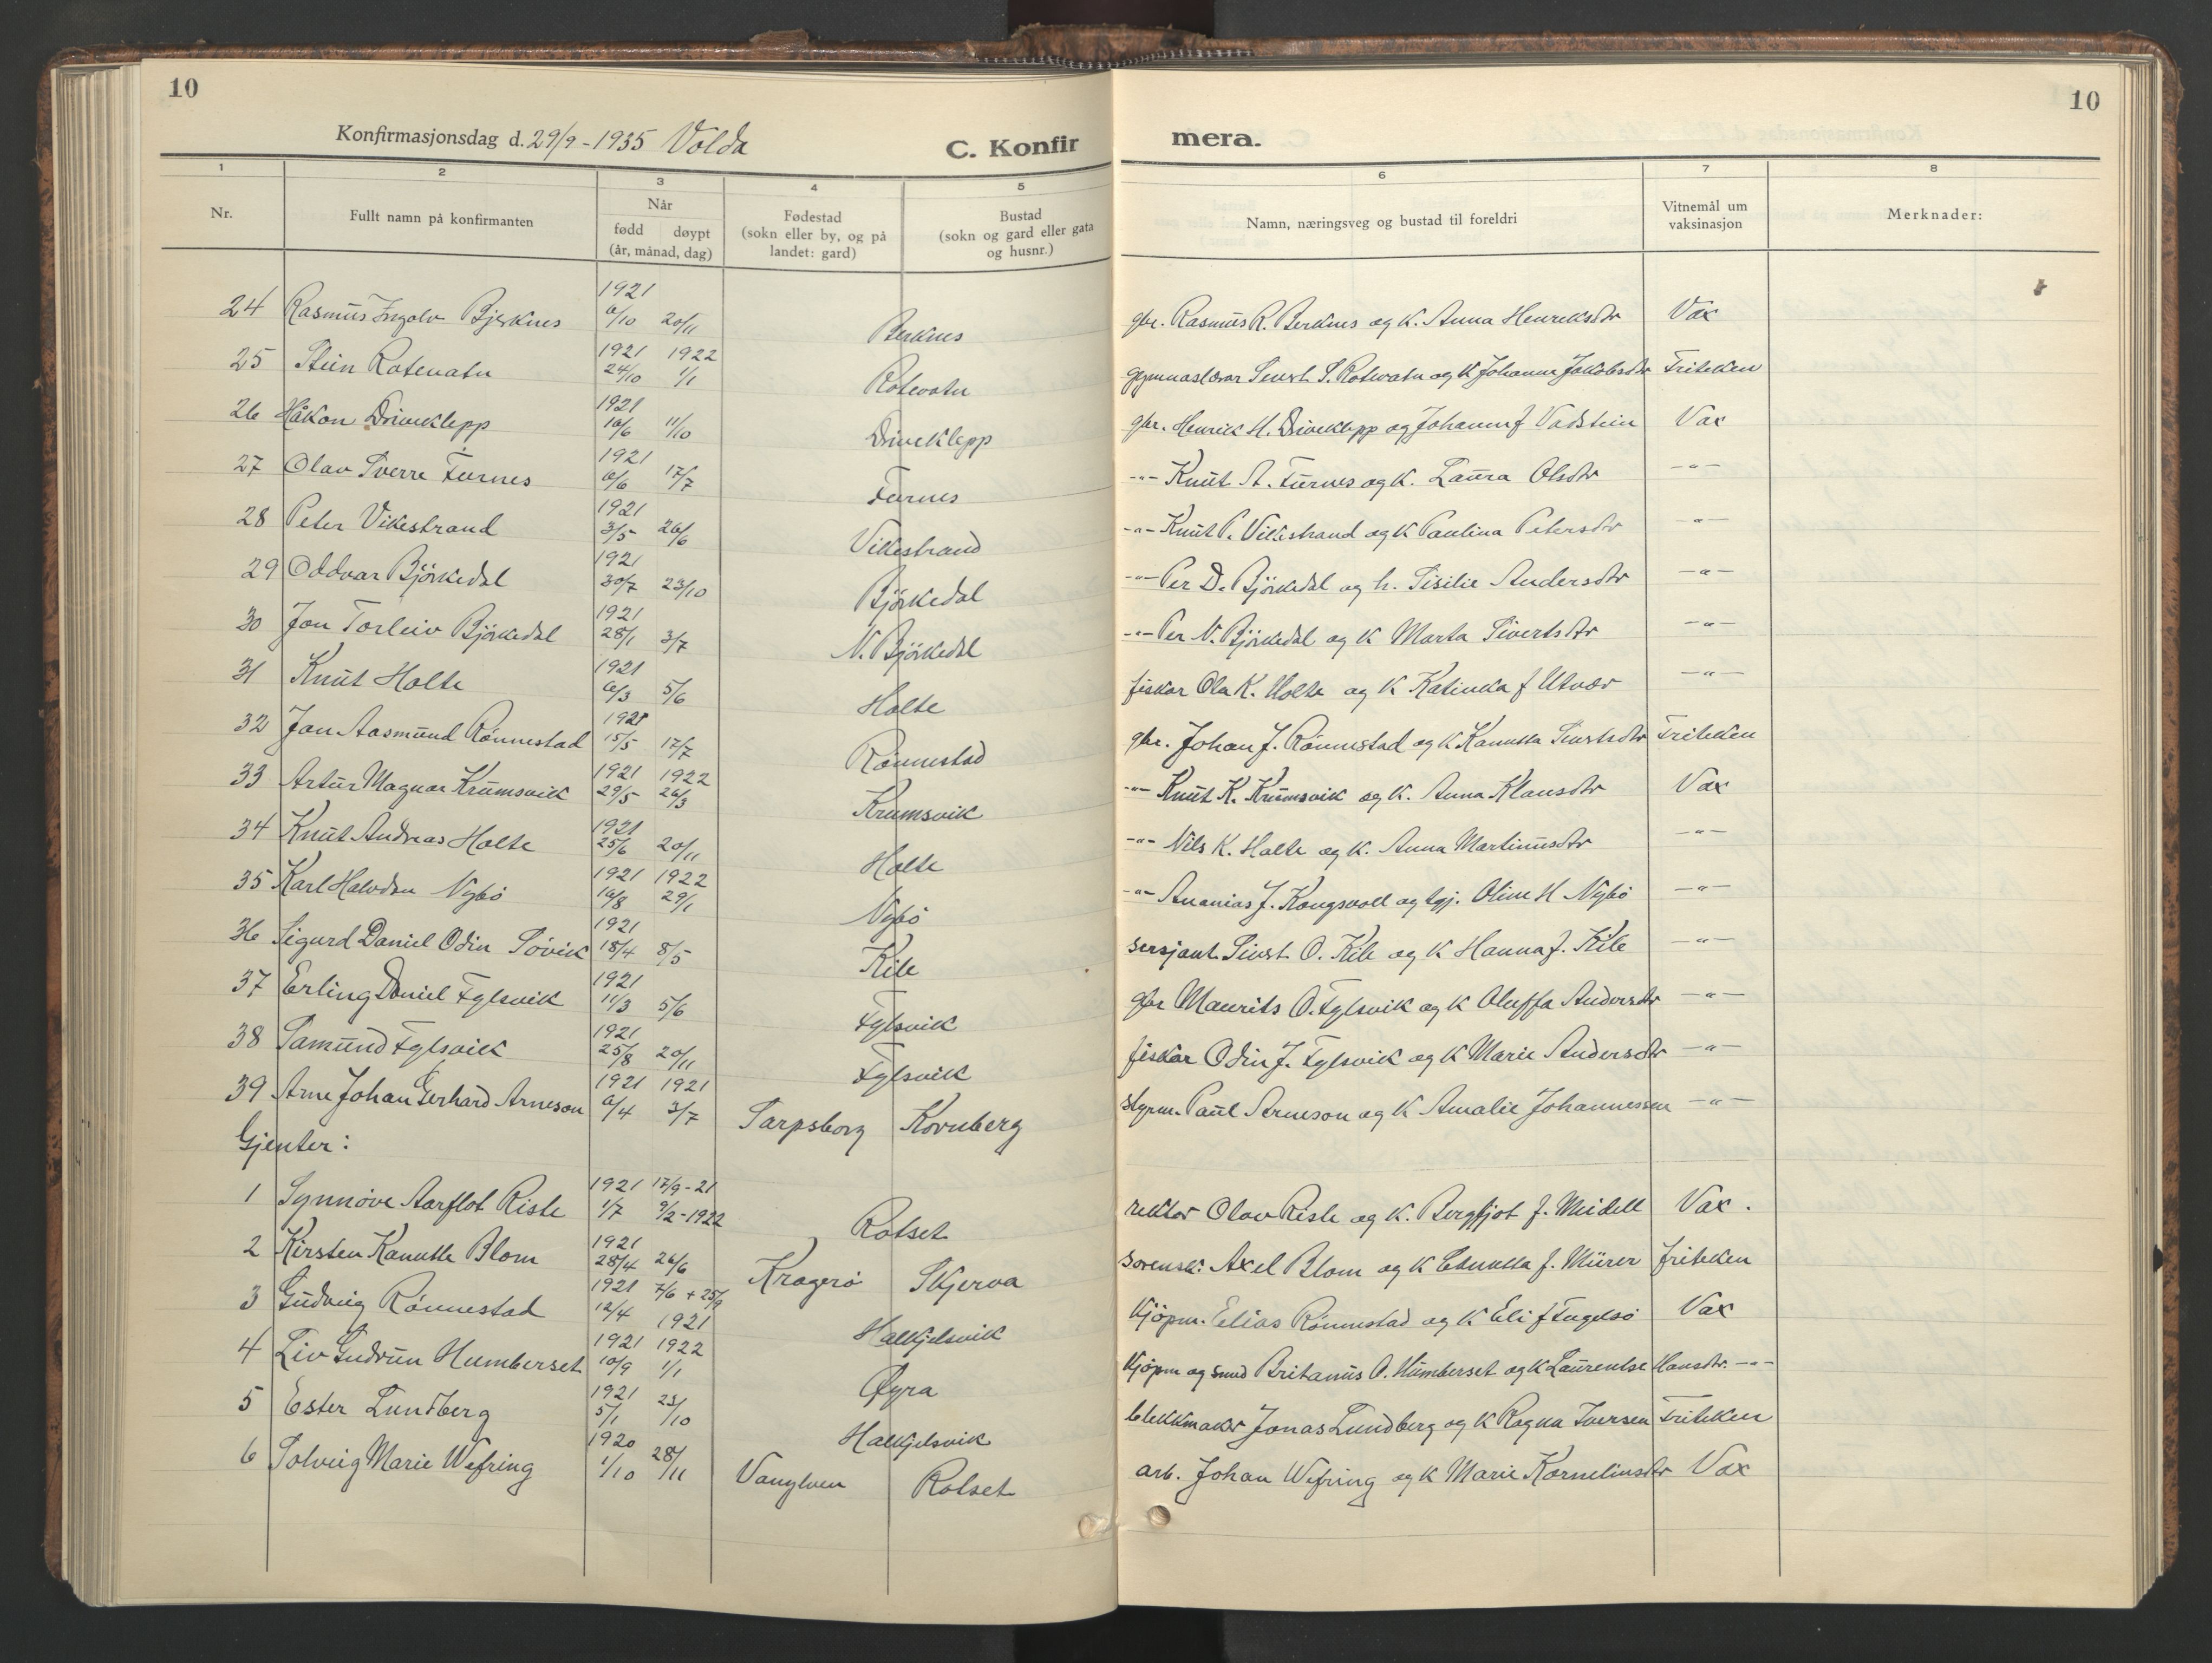 10
Konfirmasjonsdag d. 29/9 - 1935 Volda
C. Konfirmera.
10
1 2 3 4 5 6 7 8
Nr.
Fullt namn på konfirmanten
Når
født døypt
(år, månad, dag)
Fødestad
(sokn eller by, og på
landet: gard)
Bustad
(sokn og gard eller gata
og husnr.)
Namn, næringsveg og bustad til foreldri
Vitnemål um
vaksinasjon
Merknader:
24 Rasmus Ingolv Bjerknes 1921 6/10 20/11 Berknes gbr. Rasmus R. Berknes og K. Anna Henriksdtr Vax
25 Stein Rotevatn 1921 24/10 1922 1/1 Rotevatn gymnaslærar Sivert S. Rotevatn og K Johanna Jakobsdtr Friteken
26 Håkon Driveklepp 1921 10/6 11/10 Driveklepp gbr. Henrik H. Driveklepp og Johanna f Vadstein Vax
27 Olav Sverre Furnes 1921 6/6 17/7 Furnes -"- Knut A. Furnes og K. Laura Olsdtr -"-
28 Peter Vikestrand 1921 3/5 26/6 Vikestrand -"- Knut P. Vikestrand og K Paulina Petersdtr -"-
29 Oddvar Björkedal 1921 30/7 23/10 Björkedal -"- Per D. Björkedal og h. Sisilie Andersdtr -"-
30 Jon Torleiv Björkedal 1921 28/1 3/7 N. Björkedal -"- Per N. Björkedal og K Marta Sivertsdtr -"-
31 Knut Holte 1921 6/3 5/6 Holte fiskar Ola K. Holte og K Katinka f Utvær -"-
32 Jan Aasmund Rönnestad 1921 15/5 17/7 Rönnestad gbr. Johan J. Rönnestad og K Kanutta Sivertsdtr Friteken
33 Artur Magnar Krumsvik 1921 29/5 1922 26/3 Krumsvik -"- Knut K. Krumsvik og K. Anna Klausdtr Vax
34 Knut Andreas Holte 1921 25/6 20/11 Holte -"- Nils K. Holte og K. Anna Martinusdtr -"-
35 Karl Halvdan Nybö 1921 16/8 1922 29/1 Nybö -"- Ananias J. Kongsvoll og tgj. Oline H Nybö -"-
36 Sigurd Daniel Odin Sövik 1921 18/4 8/5 Kile sersjant Sivert O. Kile og K Hanna f. Kile -"-
37 Erling Daniel Fylsvik 1921 11/3 5/6 Fylsvik gbr Maurits O. Fylsvik og K Oluffa Andersdtr -"-
38 Samund Fylsvik 1921 25/8 20/11 Fylsvik fiskar Odin J. Fylsvik og K Marie Andersdtr -"-
39 Arne Johan Gerhard Arneson 1921 6/4 1921 3/7 Sarpsborg Kornberg styrm. Paul Arneson og K Amalie Johannessen -"-
Gjenter:
1 Synnöve Aarflot Riste 1921 1/7 17/9-21 9/2-1922 Rotset rektor Olav Riste og K. Bergljot f. Meidell Vax.
2 Kirsten Kanutte Blom 1921 28/4 26/6 Kragerö Skjerva sorensk. Axel Blom og K f. Mürer friteken
3 Gudveig Rönnestad 1921 12/4 7/6 + 25/9 1921 Halkjelsvik Kjöpm. Elias Rönnestad og K Eli f Fugelsö Vax
4 Liv Gudrun Humberset 1921 10/9 1922 1/1 Øyra Kjöpm og smed Britanus O. Humberset og K Laurentse Hansdtr. -"-
5 Ester Lundberg 1921 5/1 23/10 Halkjelsvik blekkmakar Jonas Lundberg og K Ragna Iversen Friteken
6 Solveig Marie Wefring 1920 1/10 28/11 Vanylven Rotset arb. Johan Wefring og K Marie Korneliusdtr Vax